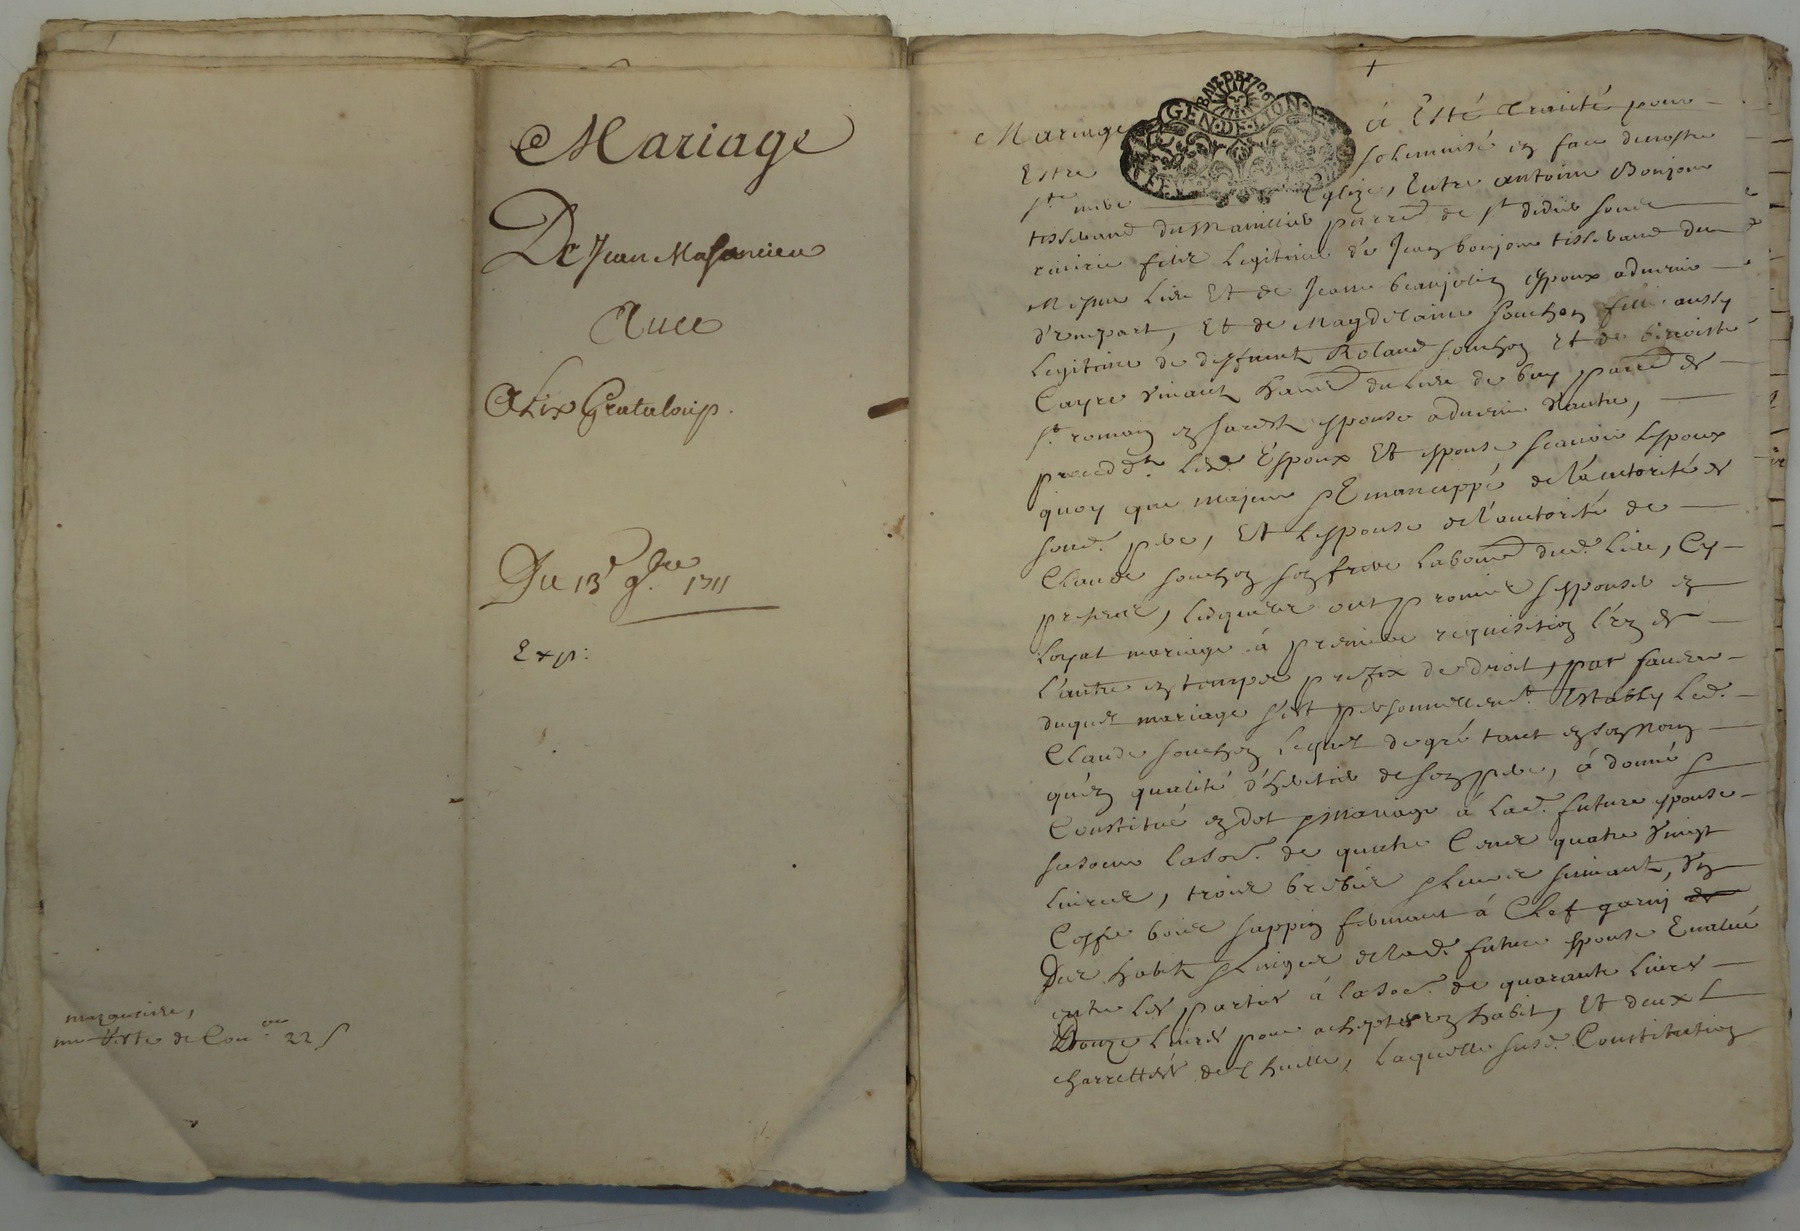 Mariage
De Jean Masancieu
Avec
Alix Grataloup.
Du 13e 9bre 1711
Exp:
de Con.on 22 s
GEN·DE·LION
Mariage à Esté traité pour
Estre solemnisé en face de nostre
ste mere Eglize, Entre antoine Bonjour
tisserand du parre de st didier soubz
riverie filz legitime de Jean bonjour tisserand du
Mesme lieu Et de Jeanne beaujolin Espoux advenir
d'unepart, Et de Magdelaine souchon fille aussy
legitime de deffunct Roland souchon Et de benoiste
Cayre vivantz du lieu de parre de
st romain en jarest espouse advenir d'autre,
procedtz lesd. Espoux Et espouse scavoir lespoux
quoy que majeur Emancippé de l'autorité de
sond. pere, Et lespouse de l'auctorité de
Claude souchon son frere dud. lieu, Cy
present, lesquelz ont promis sespouser en
loyal mariage à premiere requisition l'un de
l'autre en temps prefix de droit, par faveur
duquel mariage s'est personnellemt. Estably led.
Claude souchon lequel de gré tant en son nom
qu'en qualité d'heritier de son pere, à donné &
Constitué en dot & mariage à lad. future espouse
sa soeur la som. de quatre Cens quatre vingt
livres, trois brebis & leurs suivants, un
Coffre bois sappin fermant à Clef garny de
Des habitz & linges de lad. future espouse Evalué
entre les parties à la som. de quarante livres
Douze livres pour achepter un habit, Et deux
charrettées de thuille, laquelle susd. Constitution